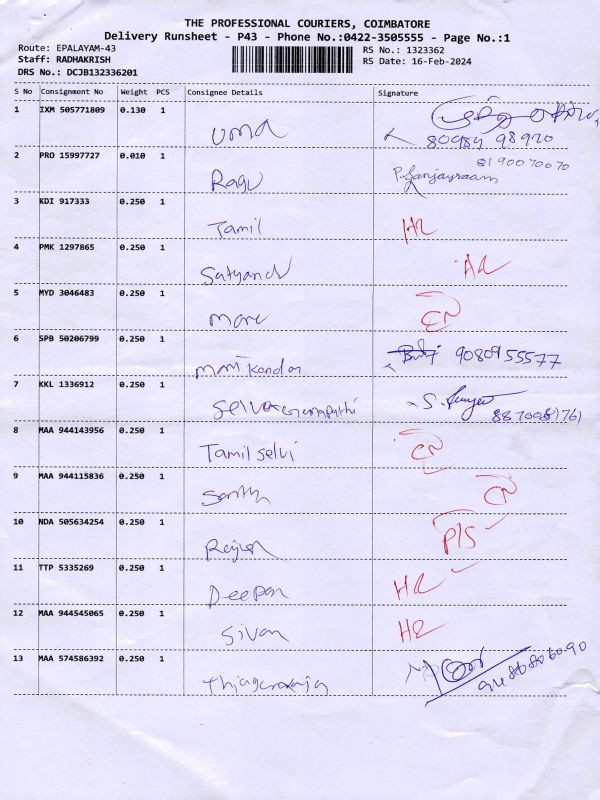 THE PROFESSIONAL COURIERS, COIMBATORE
Delivery Runsheet - P43 - Phone No.:0422-3505555 - Page No.:1
Route: EPALAYAM-43
RS No.: 1323362
Staff: RADHAKRISH
RS Date: 16-Feb-2024
DRS No.: DCJB132336201
S No Consignment No Weight PCS Consignee Details Signature
1 IXM 505771809 0.130 1
uma
2 PRO 15997727 0.010 1 8190070070
Ragu P. Sanjayraam
3 KDI 917333 0.250 1
Tamil HR
4 PMK 1297865 0.250 1
AR
5 MYD 3046483 0.250 1
6 SPB 50206799 0.250 1
Mani Kandan 9080955577
7 KKL 1336912 0.250 1
Selva Ganapathi
8 MAA 944143956 0.250 1
Tamil Selvi
9 MAA 944115836 0.250 1
10 NDA 505634254 0.250 1
P/S
11 TTP 5335269 0.250 1
Deepan HR
12 MAA 944545065 0.250 1
Sivan HR
13 MAA 574586392 0.250 1
Thiagarajan